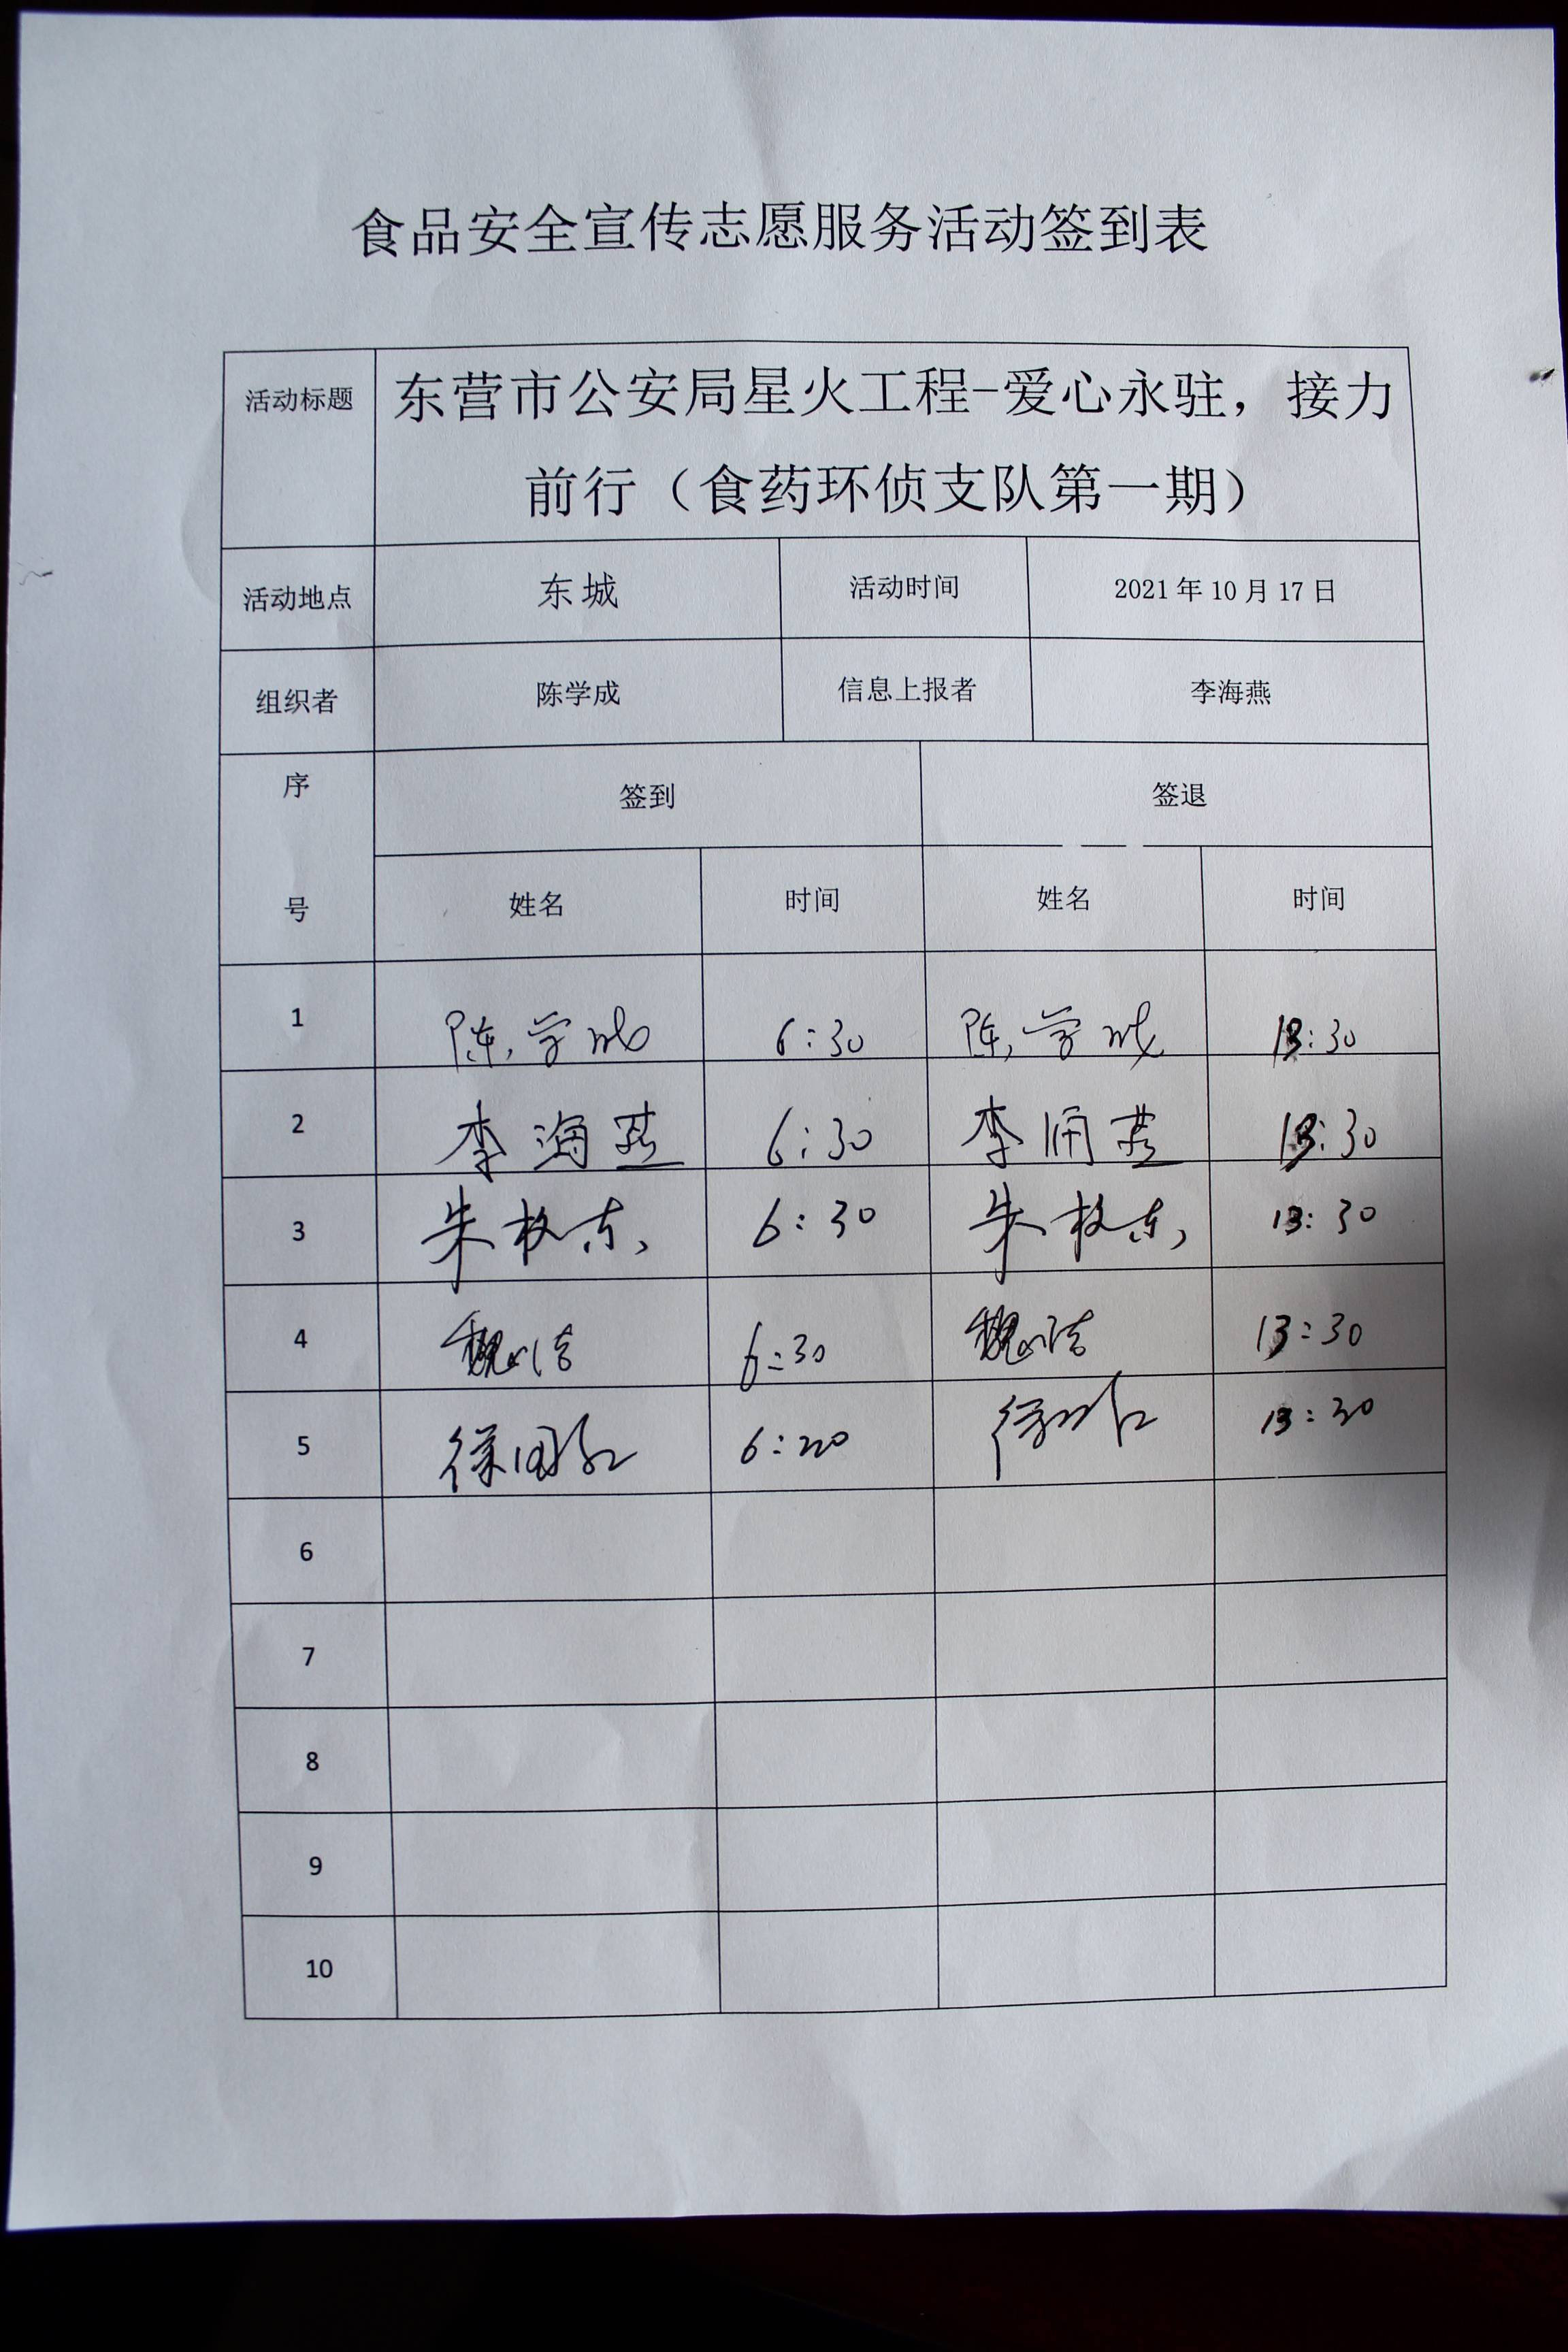 食品安全宣传志愿服务活动签到表
活动标题 东营市公安局星火工程-爱心永驻，接力
前行（食药环侦支队第一期）
活动地点 东城 活动时间 2021年10月17日
组织者 陈学成 信息上报者 李海燕
序号 签到 签退
姓名 时间 姓名 时间
1 陈学成 6:30 陈学成 13:30
2 李海燕 6:30 李海燕 13:30
3 朱 东 6:30 朱 东 13:30
4 魏 6:30 魏 13:30
5 徐国 6:20 徐 13:30
6
7
8
9
10